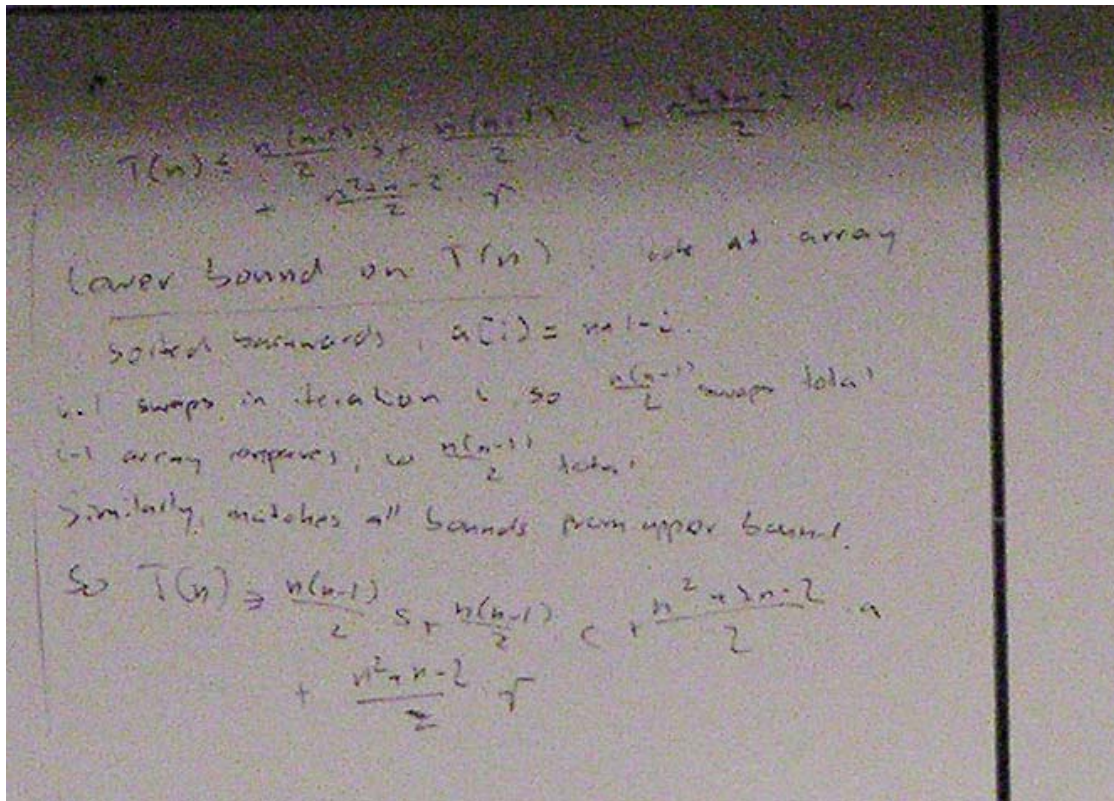 T(n) ≤ n(n-1)/2 s + n(n-1)/2 c + n²+3n-2/2 · a
+ n²+n-2/2 · r
Lower bound on T(n). look at array
sorted backwards, a[i] = n+1-i.
i-1 swaps in iteration i so n(n-1)/2 swaps total
i-1 array compares, so n(n-1)/2 total
Similarly, matches all bounds from upper bound.
So T(n) ≥ n(n-1)/2 s + n(n-1)/2 c + n²+3n-2/2 · a
+ n²+n-2/2 · r